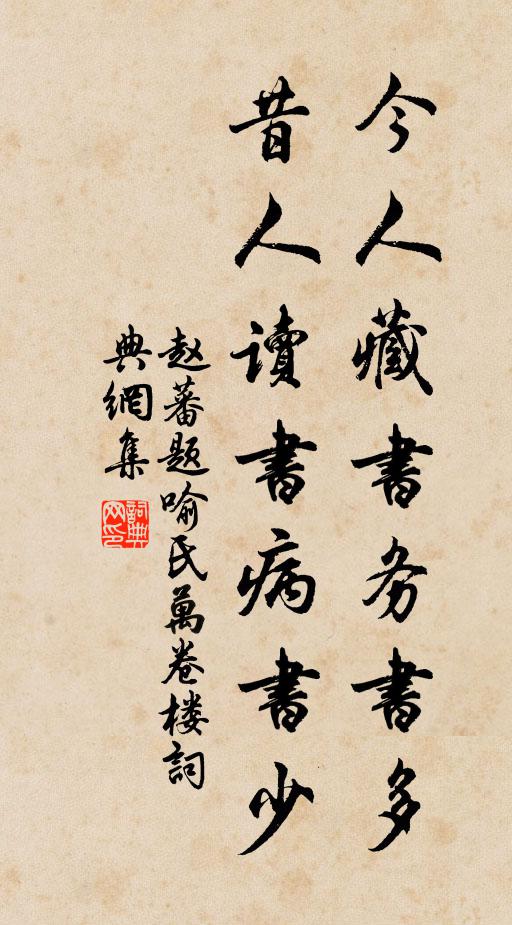 今人藏書务書多
昔人读書病書少
赵蕃题喻氏萬卷楼詞
典網集
詞典
网印